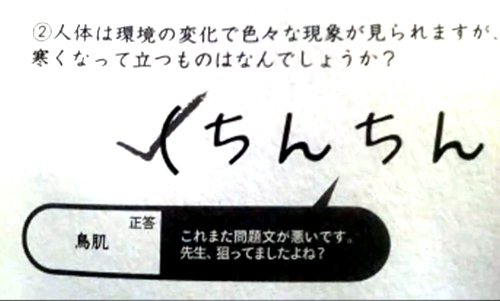 ②人体は環境の変化で色々な現象が見られますが、
寒くなって立つものはなんでしょうか？
ちんちん
正答
鳥肌
これまた問題文が悪いです。
先生、狙ってましたよね？